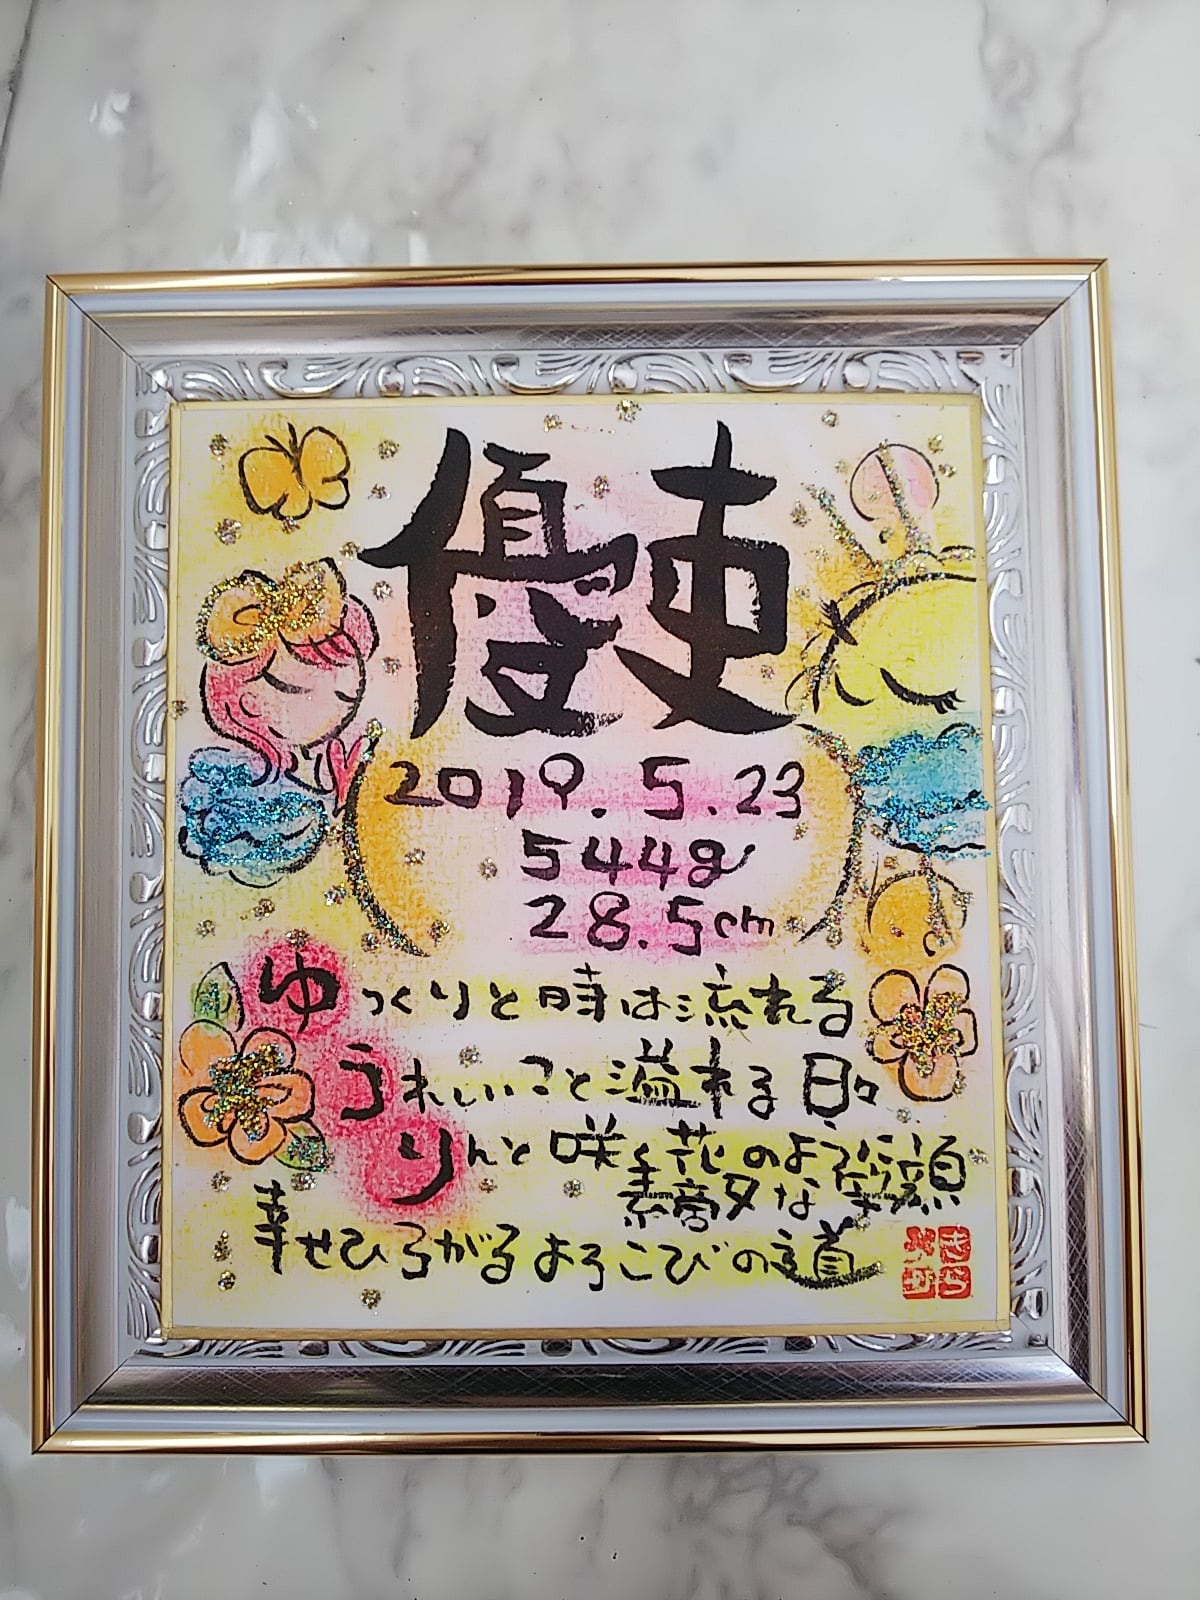 優吏
2019.5.23
544g
28.5cm
ゆっくりと時は流れる
うれしいこと溢れる日々
りんと咲く花のように
素敵な笑顔
幸せひろがるよろこびの道
きら